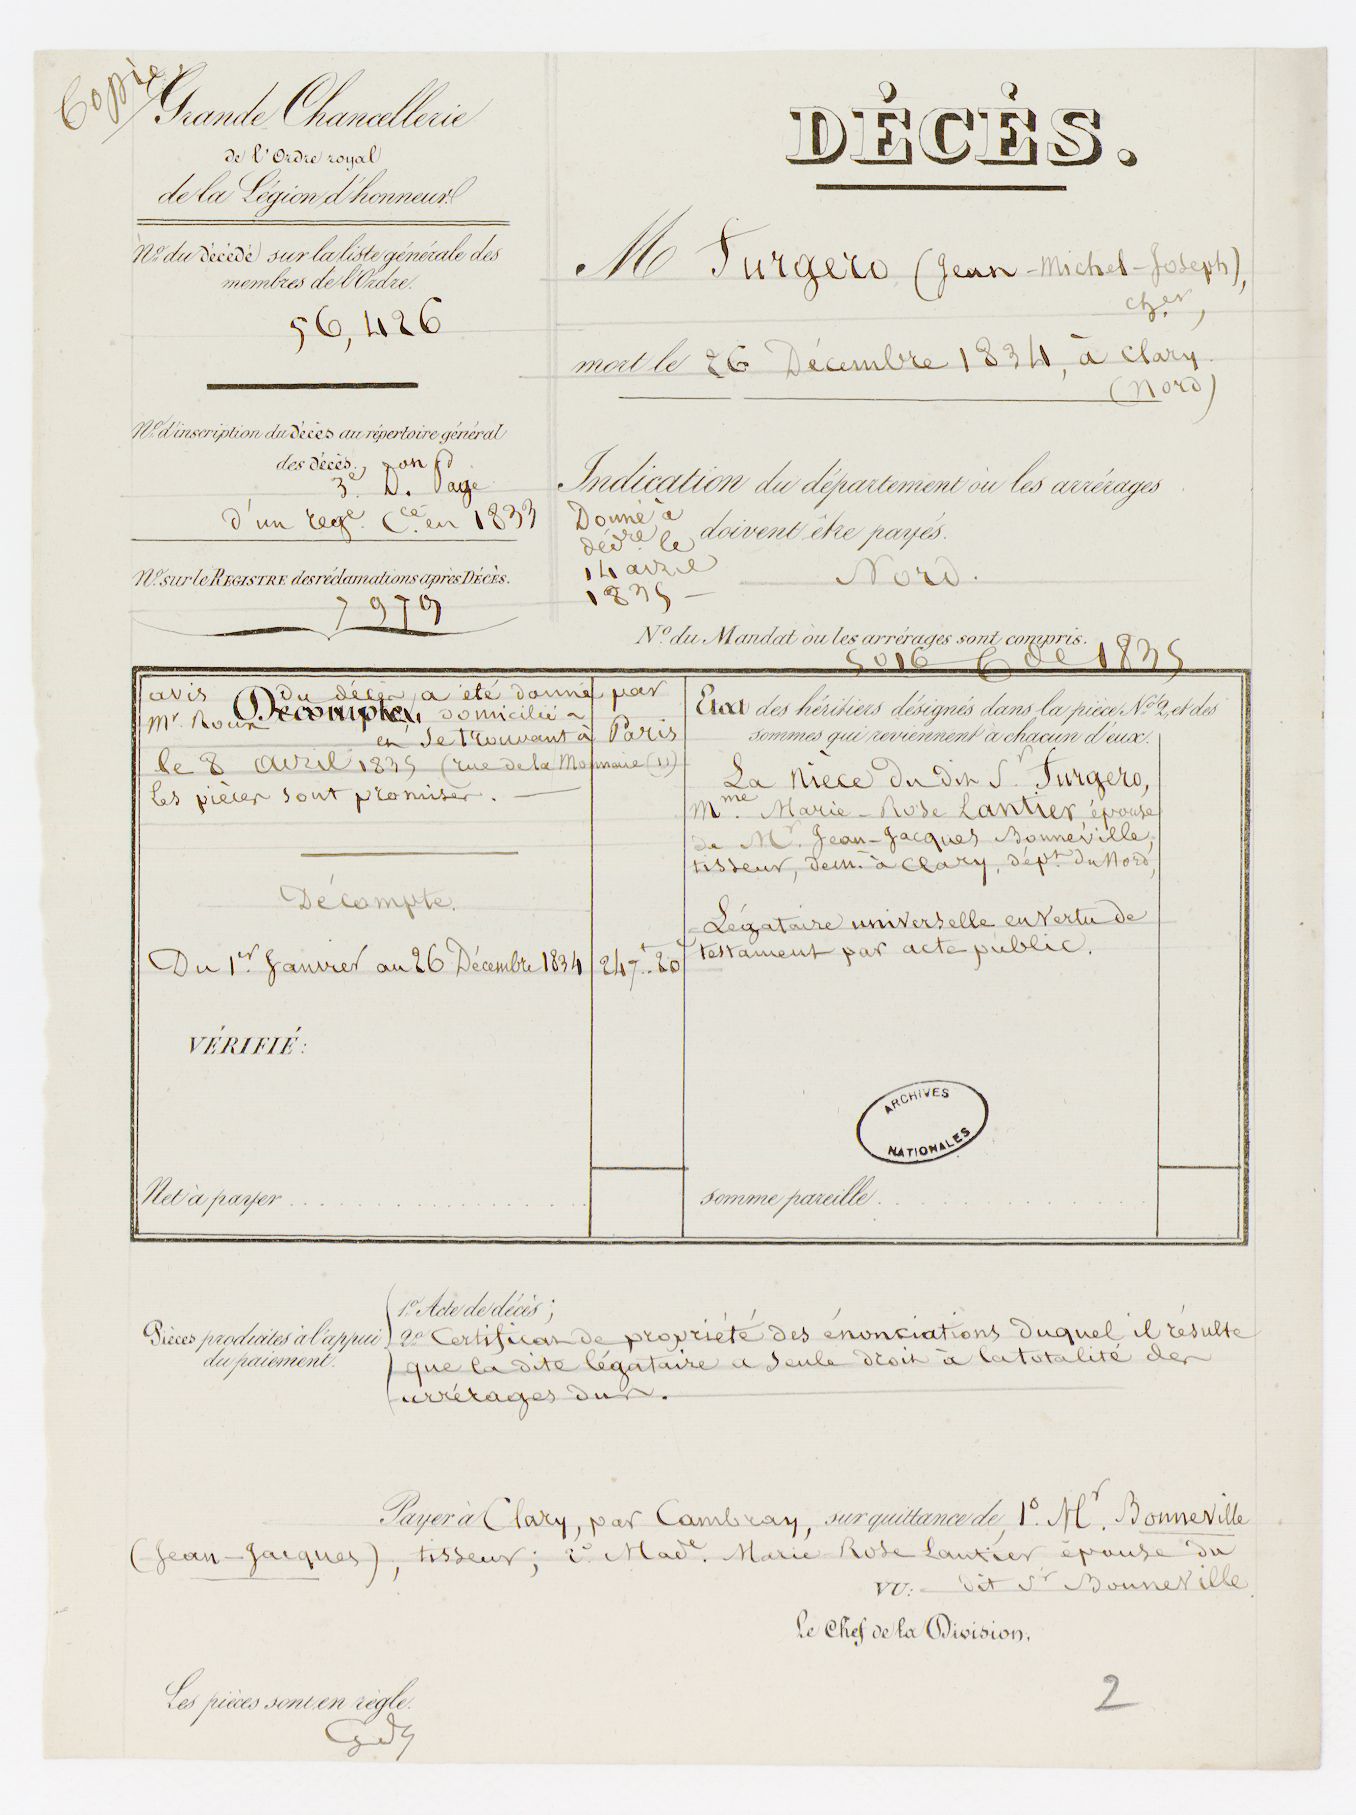 Copie.
Grande Chancellerie
de l'Ordre royal
de la Légion d'honneur.
N.º du décédé sur la liste générale des
membres de l'Ordre.
56,426
N.º d'inscription du décès au répertoire général
des décès.
3e D. Page
d'un regre. Cce. en 1833
N.º sur le REGISTRE des réclamations après DÉCÈS.
7979
DÉCÈS.
M Furgero (Jean-Michel-Joseph),
cher,
mort le 26 Décembre 1834, à Clary
(Nord)
Indication du département où les arrérages
doivent être payés.
Donné à
dédre le
14 avril
1835 —
Nord.
N.º du Mandat où les arrérages sont compris.
5016 — 6 de 1835
avis du décès a été donné par
Décompte.
Mr. Roux domicilié à
et se trouvant à Paris
le 8 avril 1835 (rue de la Monnaie 11)
Les pièces sont promises. —
Décompte.
Du 1er Janvier au 26 Décembre 1834 247f.. 20c
VÉRIFIÉ :
Net à payer
Etat des héritiers désignés dans la pièce N.º 2, et des
sommes qui reviennent à chacun d'eux.
La Nièce du dit Sr Furgero,
Mme. Marie-Rose Lantier, épouse
de Mr. Jean-Jacques Bonneville,
tisseur, demt. à Clary, dépt. du Nord,
Légataire universelle en vertu de
testament par acte public.
ARCHIVES
NATIONALES
somme pareille
Pièces produites à l'appui
du paiement.
1.º Acte de décès ;
2.º Certificat de propriété des énonciations duquel il résulte
que la dite légataire a seule droit à la totalité des
arrérages dus.
Payer à Clary, par Cambray, sur quittance de 1º. Mr. Bonneville
(Jean-Jacques), tisseur ; 2º Made. Marie Rose Lantier épouse du
dit Sr Bonneville.
VU :
Le Chef de la Division,
Les pièces sont en règle.
2